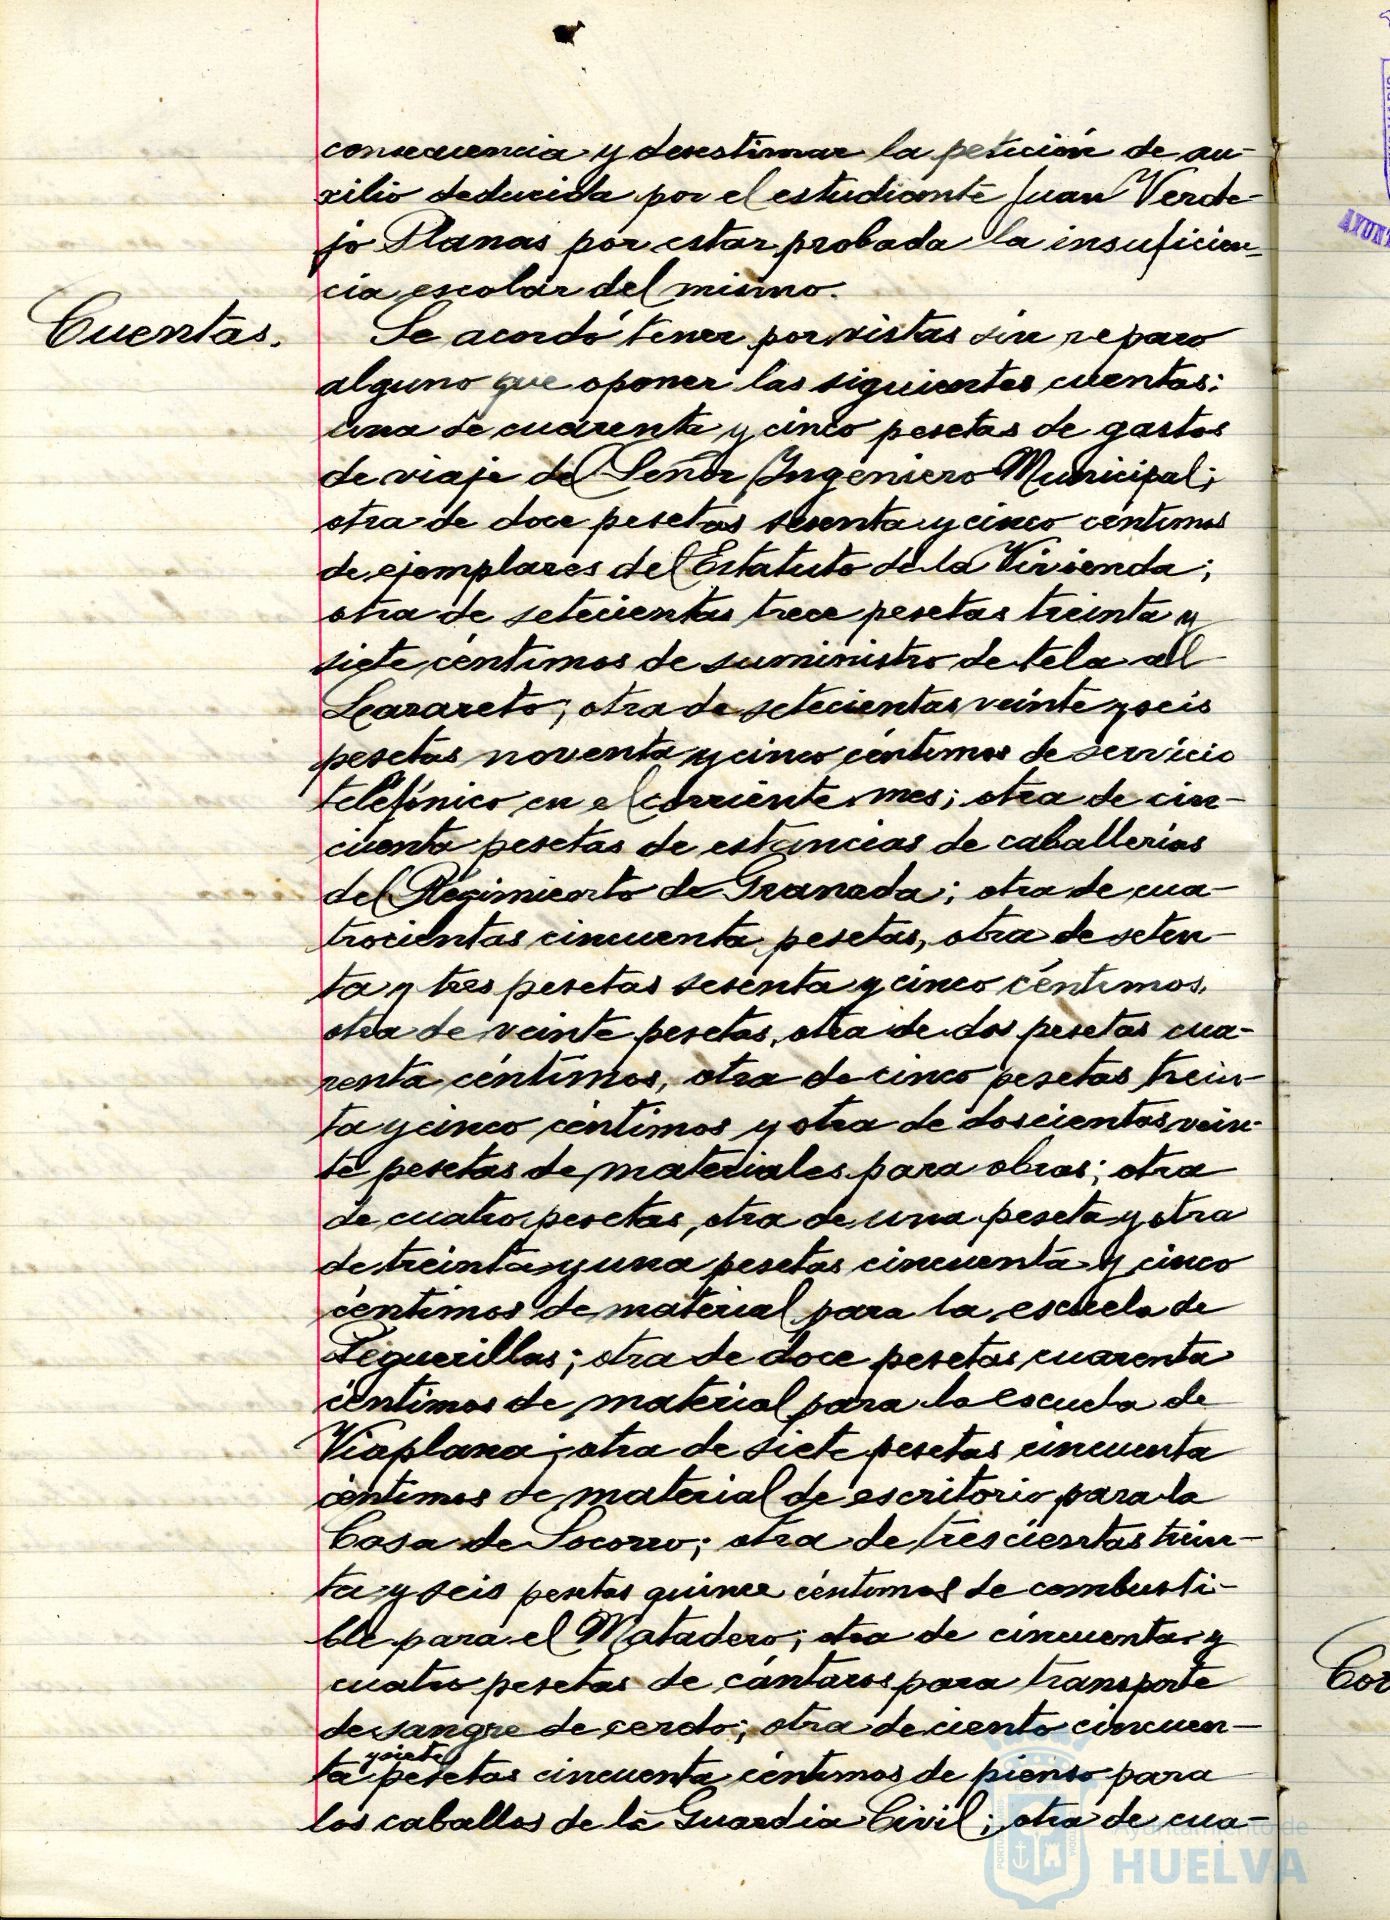 consecuencia y desestimar la petición de au-
xilio deducida por el estudiante Juan Verde-
jo Planas por estar probada la insuficien-
cia escolar del mismo.
Cuentas.
Se acordó tener por vistas sin reparo
alguno que oponer las siguientes cuentas:
una de cuarenta y cinco pesetas de gastos
de viaje del Señor Ingeniero Municipal;
otra de doce pesetas sesenta y cinco céntimos
de ejemplares del Estatuto de la Vivienda;
otra de setecientas trece pesetas treinta y
siete céntimos de suministro de tela al
Lazareto; otra de setecientas veinte y seis
pesetas noventa y cinco céntimos de servicio
telefónico en el corriente mes; otra de cin-
cuenta pesetas de estancias de caballerías
del Regimiento de Granada; otra de cua-
trocientas cincuenta pesetas, otra de seten-
ta y tres pesetas sesenta y cinco céntimos,
otra de veinte pesetas, otra de dos pesetas cua-
renta céntimos, otra de cinco pesetas trein-
ta y cinco céntimos y otra de doscientas vein-
te pesetas de materiales para obras; otra
de cuatro pesetas, otra de una peseta y otra
de treinta y una pesetas cincuenta y cinco
céntimos de material para la escuela de
Peguerillas; otra de doce pesetas cuarenta
céntimos de material para la escuela de
Viaplana; otra de siete pesetas cincuenta
céntimos de material de escritorio para la
Casa de Socorro; otra de trescientas trein-
ta y seis pesetas quince céntimos de combusti-
ble para el Matadero; otra de cincuenta y
cuatro pesetas de cántaros para transporte
de sangre de cerdo; otra de ciento cincuen-
ta y siete pesetas cincuenta céntimos de pienso para
los caballos de la Guardia Civil; otra de cua-
Cor
Ayuntamiento de
HUELVA